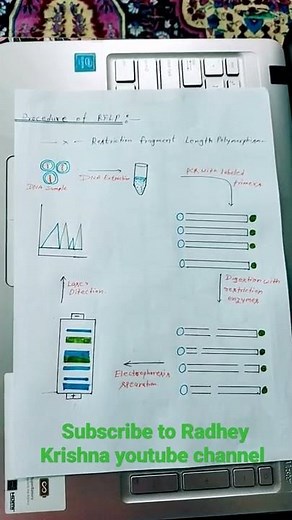 Procedure of RFLP:
Restriction fragment Length Polymorphism
DNA Sample
DNA Extraction
PCR with labeled
primers
Digestion with
restriction
enzymes
Electrophoresis
separation
Laser
Ditection
Subscribe to Radhey
Krishna youtube channel